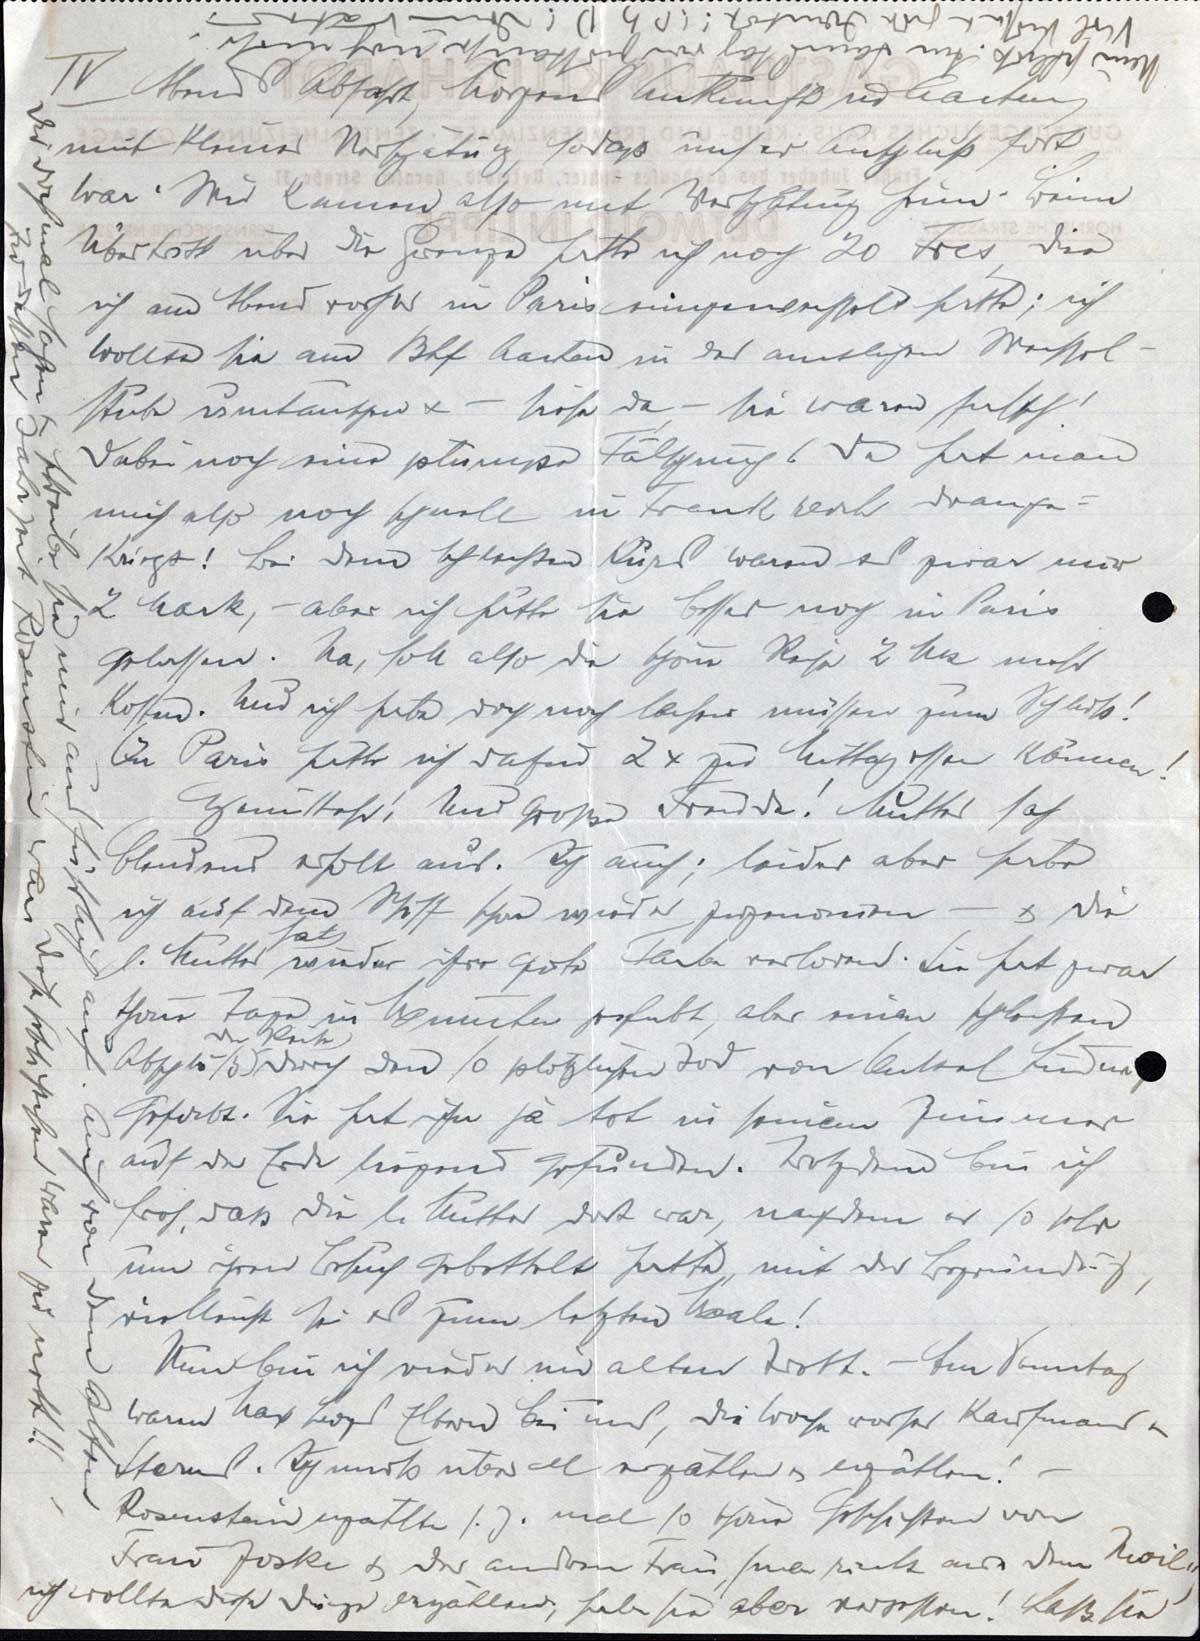 IV
Abend Abfahrt, Morgens Ankunft in Aachen
mit kleiner Verspätung, sodass unser Anschluß fort
war. Wir kamen also mit Verspätung heim. Beim
Übertritt über die Grenze hatte ich noch 20 Frcs, die
ich am Abend vorher in Paris eingewechselt hatte; ich
wollte sie am Bhf Aachen in der amtlichen Wechsel-
stube umtauschen & – siehe da, – sie waren falsch!
Dabei noch eine plumpe Fälschung! Da hat man
mich also noch schnell in Frankreich drange-
kriegt! Bei dem schlechten Kurs waren es zwar nur
2 Mark, – aber ich hätte sie besser noch in Paris
gelassen. Na, soll also die schöne Reise 2 Mk mehr
kosten. Und ich habe doch noch lachen müssen zum Schluß!
In Paris hätte ich dafür 2 x zu Mittag essen können!
Und große Freude! Mutter sah
blendend erholt aus. Ich auch; leider aber habe
ich auf dem Schiff schon wieder zugenommen – & die
l. Mutter hat wieder ihre gute Farbe verloren. Sie hat zwar
schöne Tage in gehabt, aber einen schlechten
Abschluß der Reise durch den so plötzlichen Tod von Onkel
gehabt. Sie hat ihn ja tot in seinem Zimmer
auf der Erde liegend gefunden. Trotzdem bin ich
froh, daß die l. Mutter dort war, nachdem er so sehr
um ihren Besuch gebettelt hatte, mit der Begründung,
vielleicht sei es zum letzten Male!
Nun bin ich wieder im alten Trott. – Am Sonntag
waren Max Eltern bei uns, die Woche vorher Kaufmanns &
Sterns. Ich muß überall erzählen & erzählen! –
Rosenstein erzählte s. Z. mal so schöne Geschichten von
Frau Joske & der anderen Frau,
ich wollte diese Dinge erzählen, habe sie aber vergessen! Laß sie
Dir doch mal sagen & schreibe sie mir ausführlich auf. Auch von dem alten
was diese Geschichten waren zu nett!! –
Viel